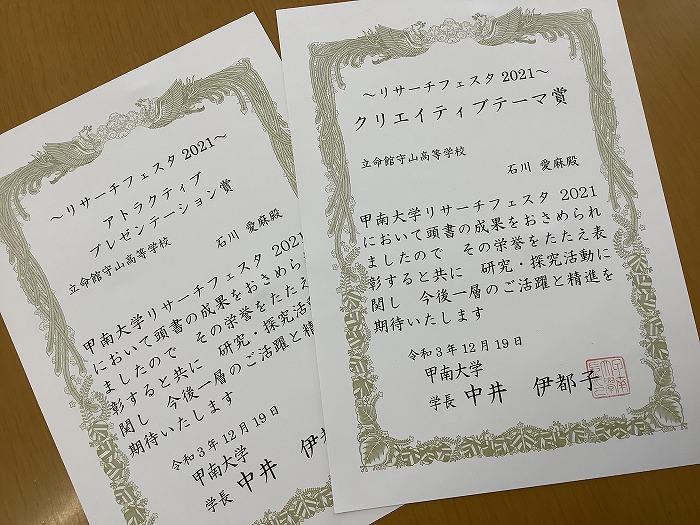 ～リサーチフェスタ 2021～
アトラクティブ
プレゼンテーション賞
立命館守山高等学校
石川 愛麻殿
甲南大学リサーチフェスタ 2021
において頭書の成果をおさめられ
ましたので その栄誉をたたえ
彰すると共に 研究・探究活
関し 今後一層のご活躍と精
期待いたします
令和3年12月19日
甲南大学
学長 中井 伊
～リサーチフェスタ 2021～
クリエイティブテーマ賞
立命館守山高等学校
石川 愛麻殿
甲南大学リサーチフェスタ 2021
において頭書の成果をおさめられ
ましたので その栄誉をたたえ表
彰すると共に 研究・探究活動に
関し 今後一層のご活躍と精進を
期待いたします
令和3年12月19日
甲南大学
学長 中井 伊都子